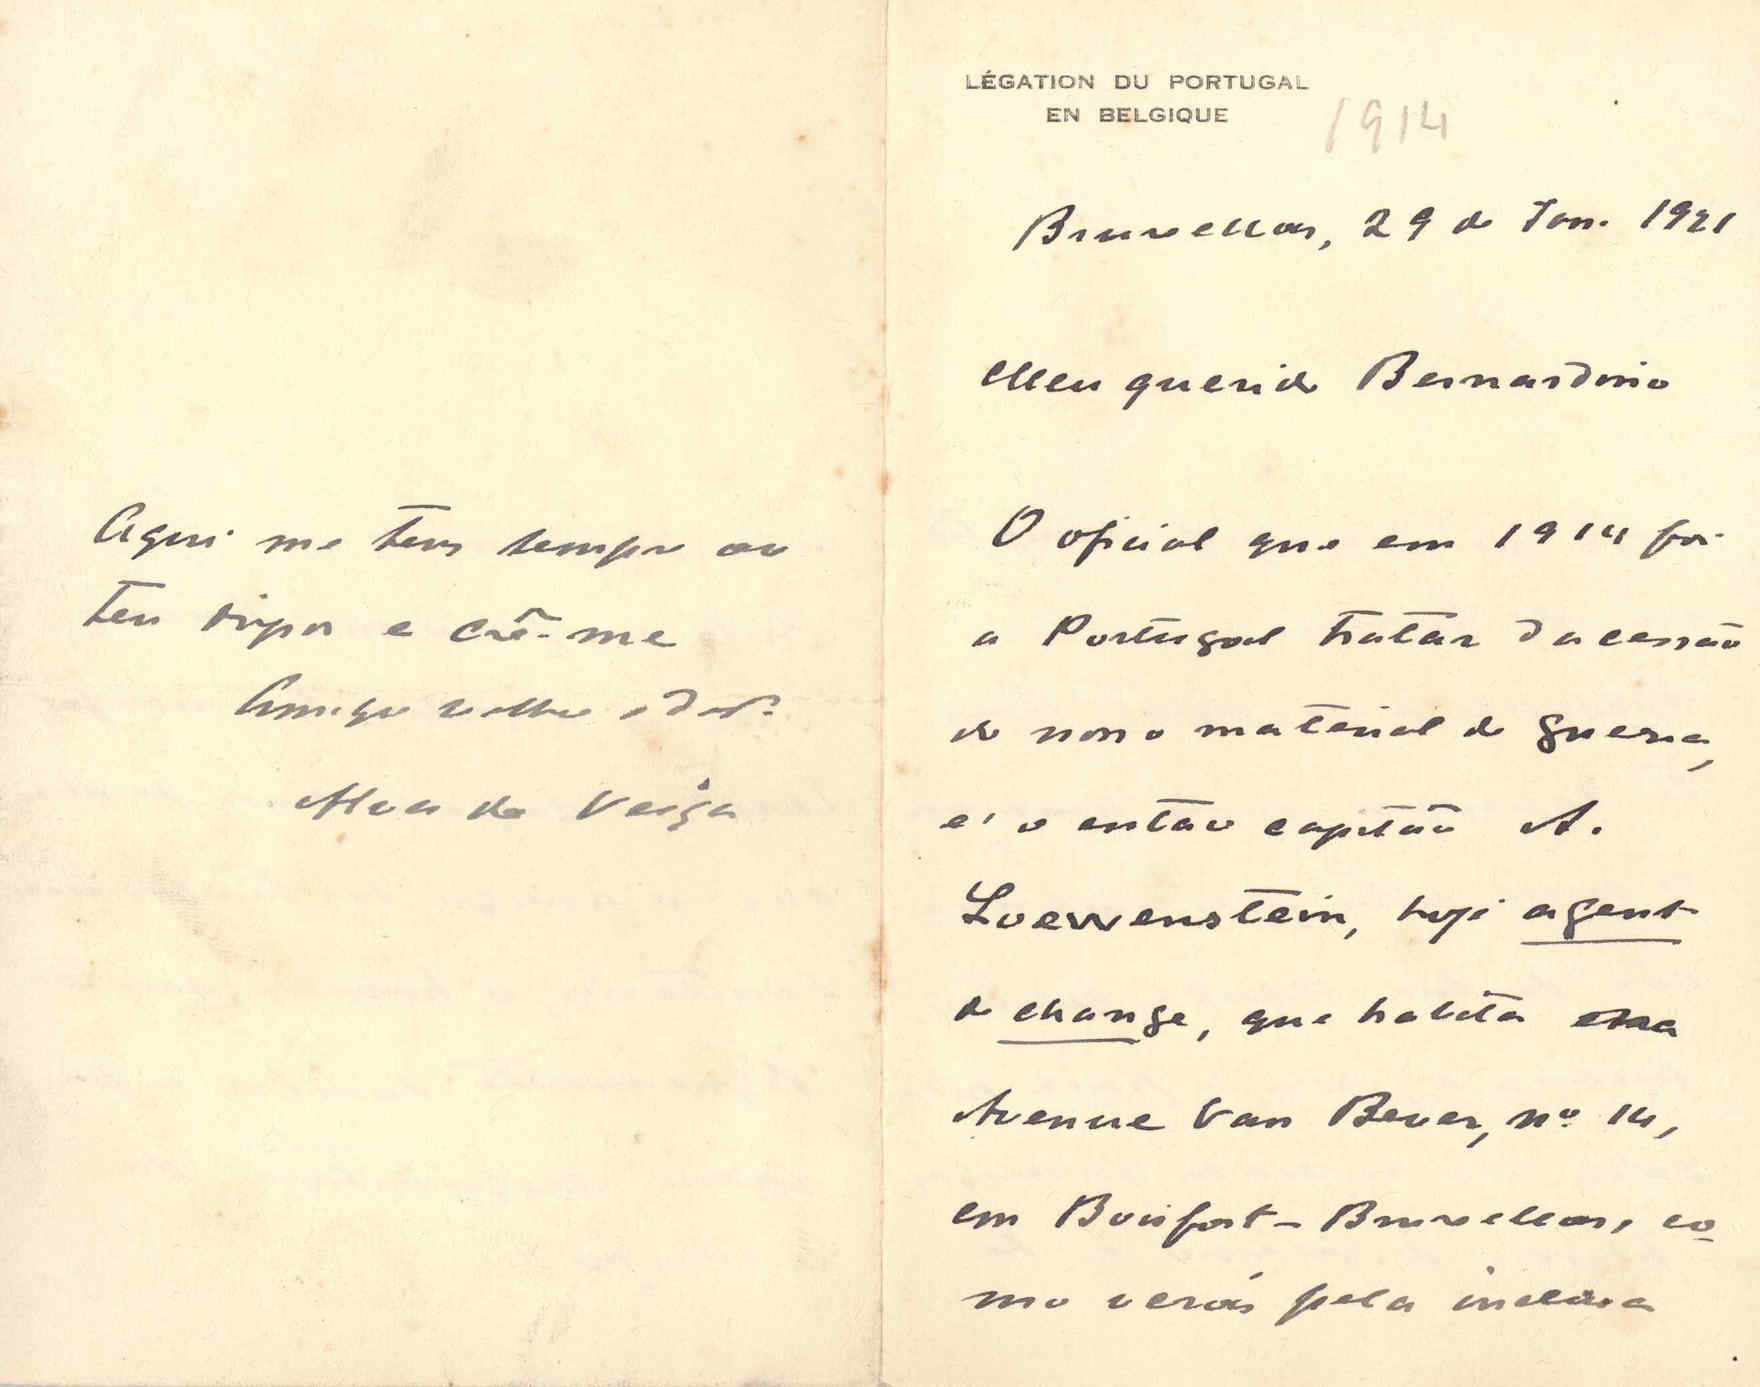 LÉGATION DU PORTUGAL
EN BELGIQUE
1914
Bruxellas, 29 de Jan. 1921
Meu querido Bernardino
O oficial que em 1914 foi
a Portugal tratar da cessão
do nosso material de guerra,
é o então capitão A.
Loewenstein, hoje agent
de change, que habita
Avenue Van Bever, nº 14,
em Boisfort - Bruxellas, co-
mo verás pela inclusa
Aqui me tens sempre ao
teu dispor e crê-me
Amigo velho e ded.º
Alves da Veiga